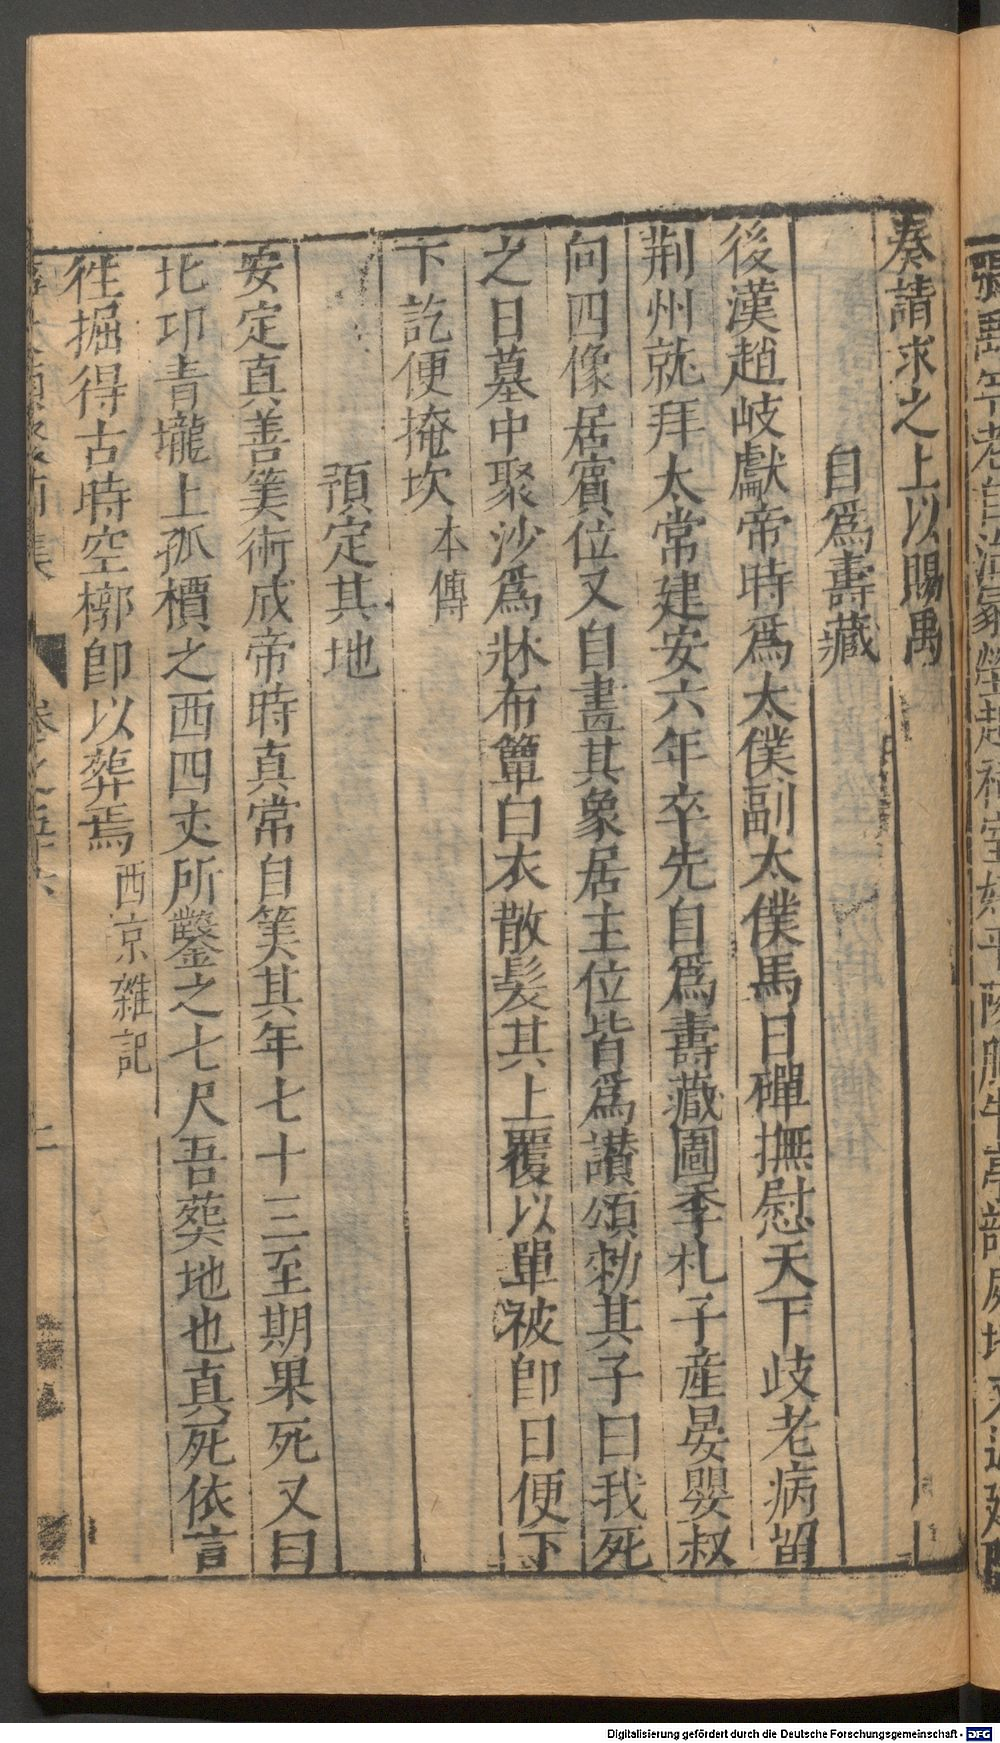 奏請求之上以賜禹
自爲壽藏
後漢趙岐獻帝時爲太僕副太僕馬日磾撫慰天下岐老病留
荆州就拜太常建安六年卒先自爲壽藏圖季札子産晏嬰叔
向四像居賓位又自畫其象居主位皆爲讃頌勑其子曰我死
之日墓中聚沙爲牀布簟白衣散髮其上覆以單被卽日便下
下訖便掩坎 本傳
預定其地
安定真善筭術成帝時真常自筭其年七十三至期果死又曰
北邙青壠上孤檟之西四丈所鑿之七尺吾葬地也真死依言
徃掘得古時空槨卽以葬焉 西京雜記
卷之五十六
Digitalisierung gefördert durch die Deutsche Forschungsgemeinschaft - DFG